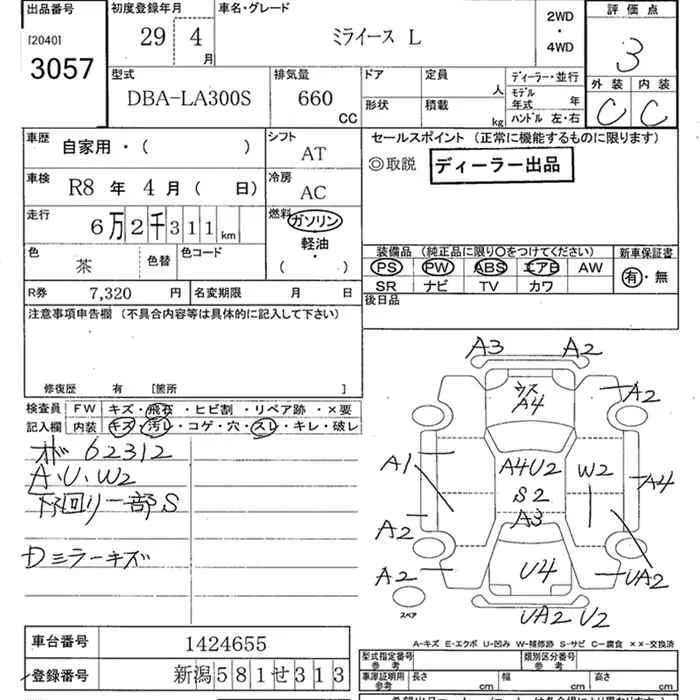 出品番号 初度登録年月 車名・グレード 2WD・4WD 評価点
[2040] 29 4月 ミライース L 3
3057
型式 排気量 ドア 定員 人 ディーラー・並行 外装 内装
DBA-LA300S 660 CC 形状 積載 kg モデル年式 年 C C
ハンドル 左・右
車歴 自家用・( ) シフト AT セールスポイント (正常に機能するものに限ります)
◎取説 ディーラー出品
車検 R8 年 4 月 ( 日) 冷房 AC
走行 6万2千311km 燃料 ガソリン 軽油・( )
色 茶 色替 色コード
装備品 (純正品に限り○をつけてください) 新車保証書
PS PW ABS エアB AW 有・無
SR ナビ TV カワ
R券 7,320 円 名変期限 月 日 後日品
注意事項申告欄 (不具合内容等は具体的に記入して下さい)
修復歴 有 [箇所 ]
検査員 FW キズ・飛石・ヒビ割・リペア跡・×要
記入欄 内装 キズ・汚レ・コゲ・穴・スレ・キレ・破レ
62312
A・U・W2
下回り一部S
Dミラーキズ
A3 A2
ウス
A4
A2
A1
A4U2
W2
A4
S2
A3
A2
A2
U4
UA2
UA2 U2
スペア
A-キズ E-エクボ U-凹み W-補修跡 S-サビ C-腐食 ××-交換済
車台番号 1424655
型式指定番号 参考 類別区分番号 参考
登録番号 新潟581せ313
車庫証明用 参考 長さ cm 幅 cm 高さ cm